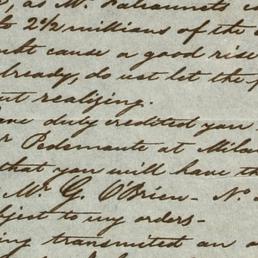 , as Mr. Patrumets
to 2 1/2 millions of the
cause a good rise
already, do not let the
ut realising.
ave duly credited you
r Pedemonte at Milan
that you will have th
Mr. G. O'Brien - No.
bject to my orders -
ing transmitted an a